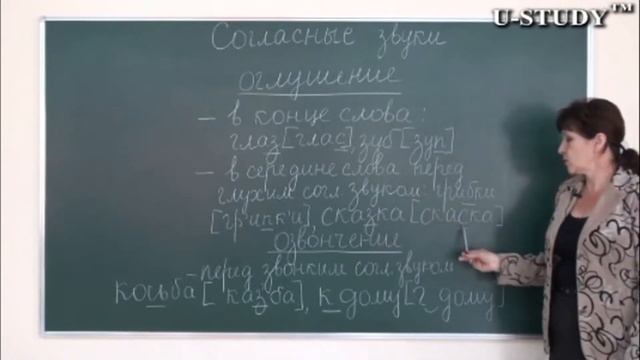 U-STUDY™
Согласные звуки
оглушение
– в конце слова:
глаз [глас], зуб [зуп]
– в середине слова перед
глухим согл звуком: грибки
[гр'ипк'и], сказка [скаска]
Озвончение
– перед звонким согл звуком
косьба [каз'ба], к дому [г_дому]